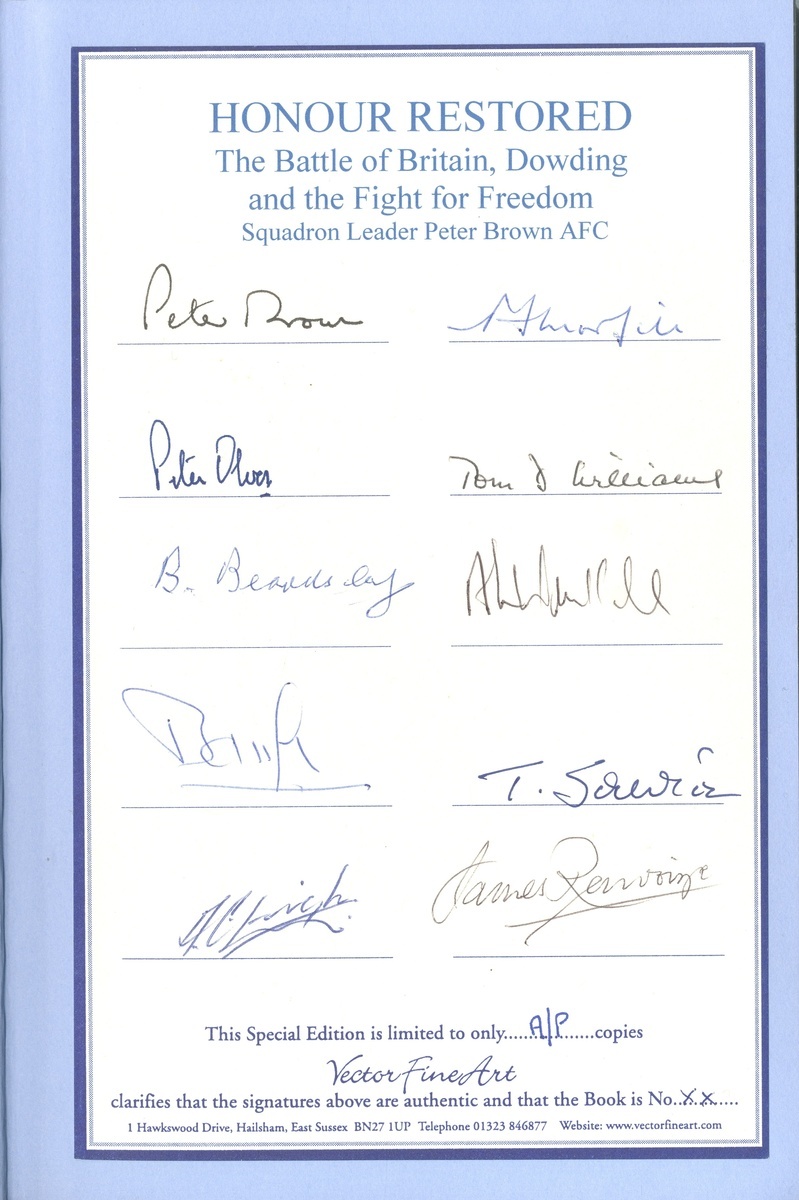 HONOUR RESTORED
The Battle of Britain, Dowding
and the Fight for Freedom
Squadron Leader Peter Brown AFC
Peter Brown
Peter Olver
Tom D Williams
B. Beardsley
T.
James Renvoize
This Special Edition is limited to only......A/P......copies
Vector Fine Art
clarifies that the signatures above are authentic and that the Book is No..XX....
1 Hawkswood Drive, Hailsham, East Sussex BN27 1UP Telephone 01323 846877 Website: www.vectorfineart.com